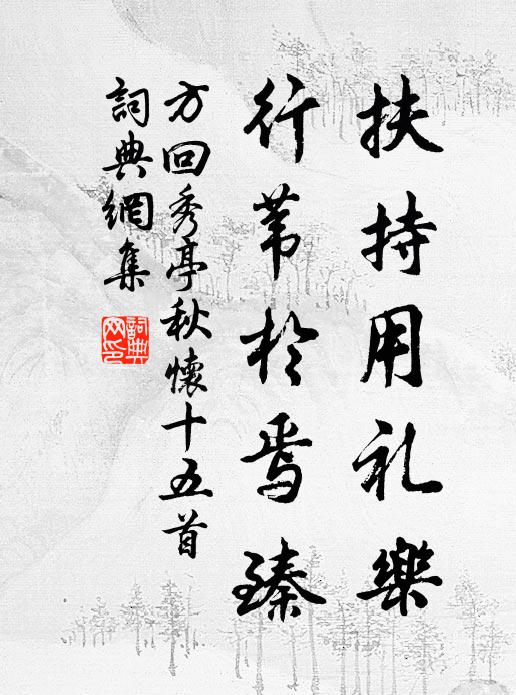 扶持用礼樂
行苇於焉臻
方回秀亭秋懷十五首
詞典網集
詞典網印